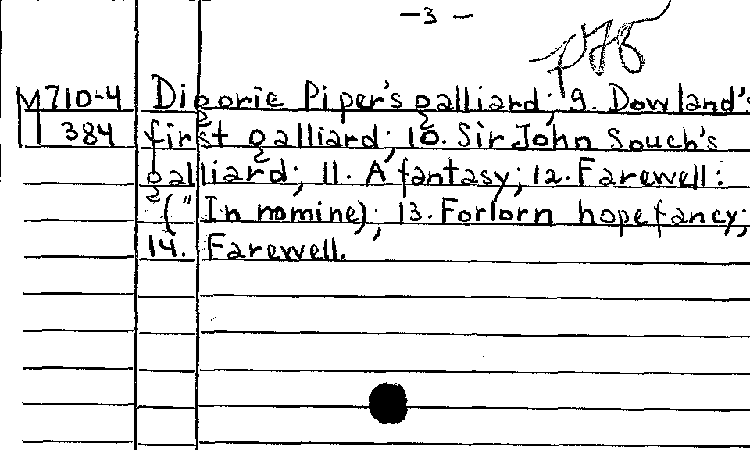 - 3 -
M710-4 Digorie Piper's galliard; 9. Dowland's
384 first galliard; 10. Sir John Souch's
galliard; 11. A fantasy; 12. Farewell:
(" In nomine); 13. Forlorn hope fancy;
14. Farewell.